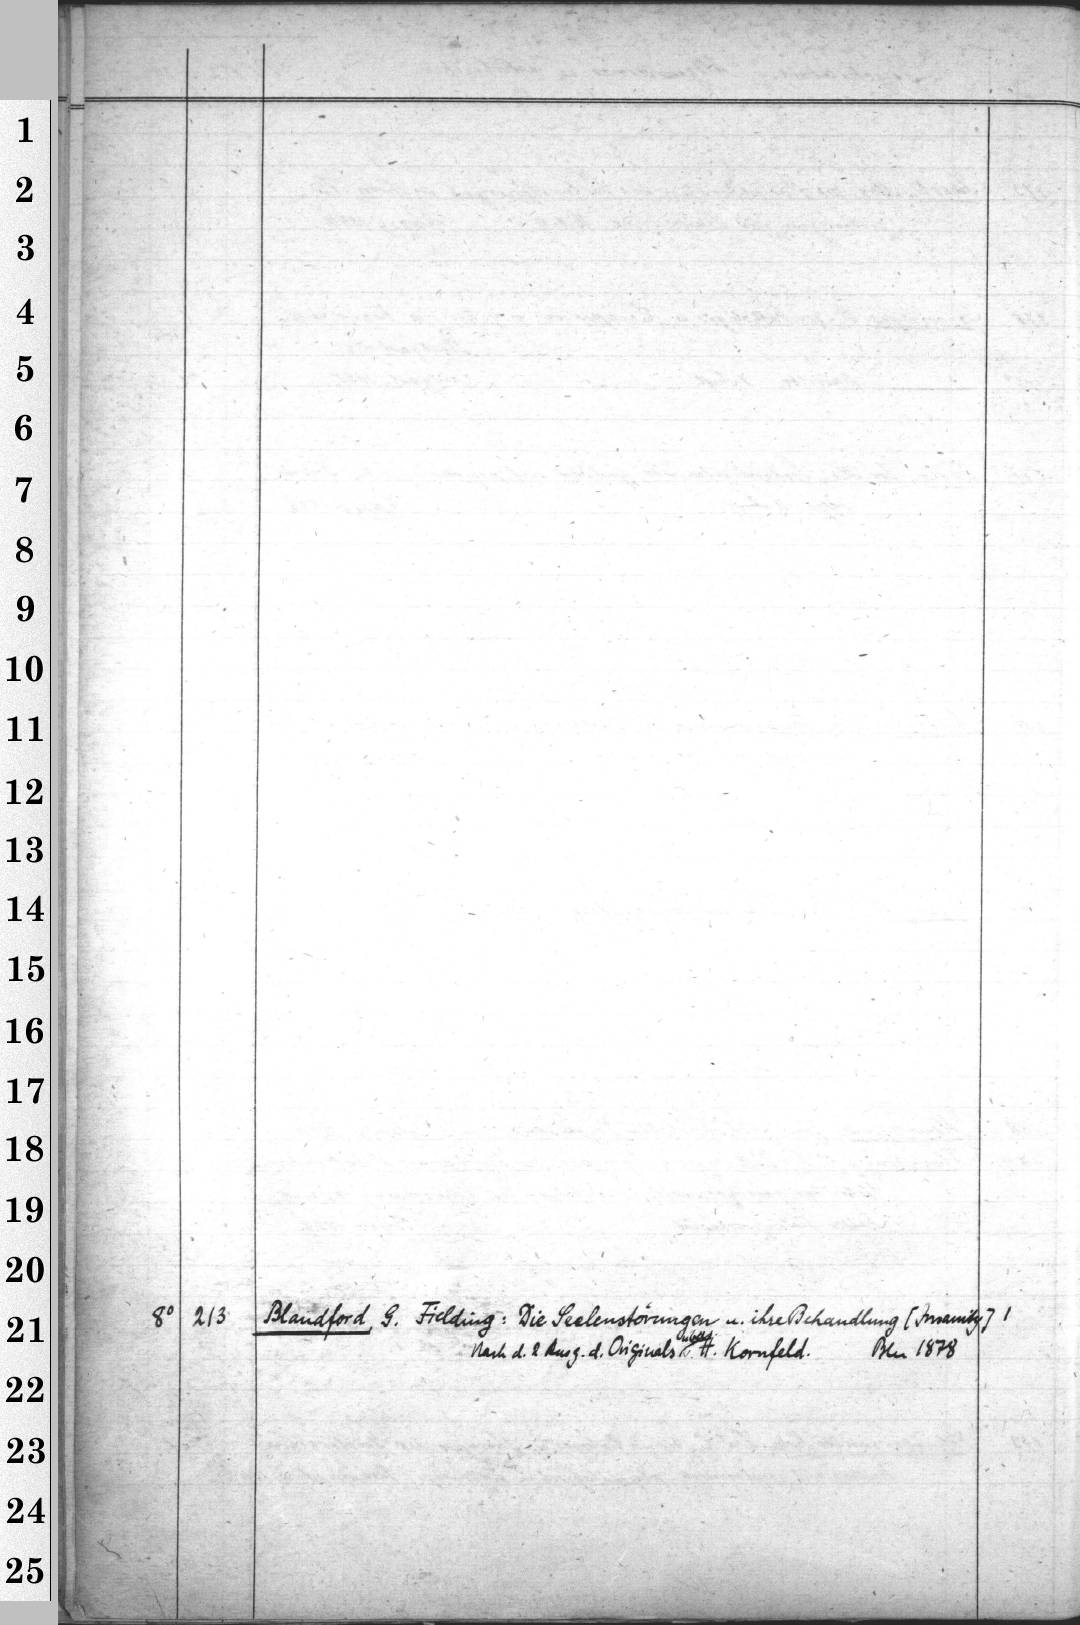 1
2
3
4
5
6
7
8
9
10
11
12
13
14
15
16
17
18
19
20
21
8° 213 Blandford, G. Fielding: Die Seelenstörungen u. ihre Behandlung [Insanity] 1
Nach d. 2 Ausg. d. Originals H. Kornfeld. Bln 1878
22
23
24
25